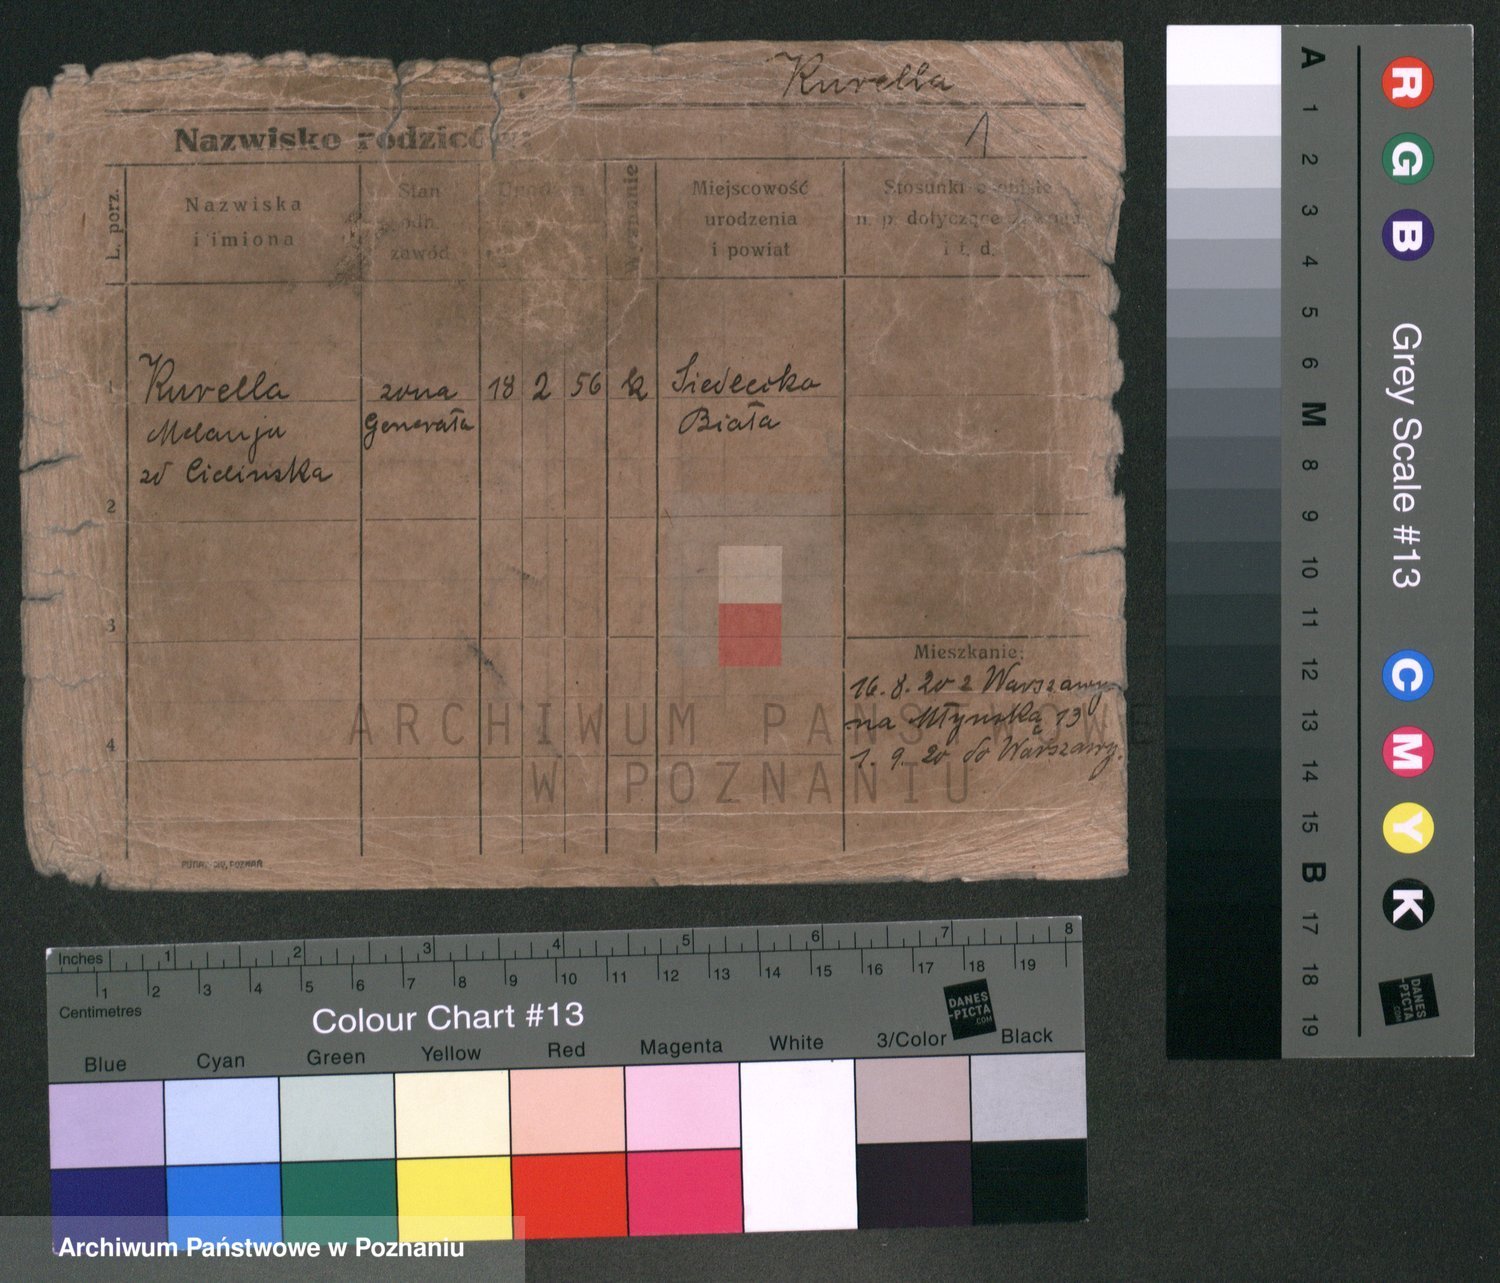 Kurella
1
Nazwisko rodziców:
L. porz.
Nazwiska
i imiona
Stan
zawód
Wyznanie
Miejscowość
urodzenia
i powiat
Stosunki osobiste
n. p. dotyczące
i t. d.
1
Kurella
żona
18 2 56 k
Siedlecka
Melanja
Generała
Biała
zd
2
3
4
Mieszkanie:
16. 8. 20 z Warszawy
na Młyńską 13
1. 9. 20 do Warszawy.
POZNAŃ
ARCHIWUM PAŃSTWOWE
W POZNANIU
Inches 1 2 3 4 5 6 7 8
1 2 3 4 5 6 7 8 9 10 11 12 13 14 15 16 17 18 19
Centimetres
Colour Chart #13
DANES
-PICTA
.COM
Blue Cyan Green Yellow Red Magenta White 3/Color Black
Archiwum Państwowe w Poznaniu
A 1 2 3 4 5 6 M 8 9 10 11 12 13 14 15 B 17 18 19
R G B Grey Scale #13 C M Y K
DANES
-PICTA
.COM